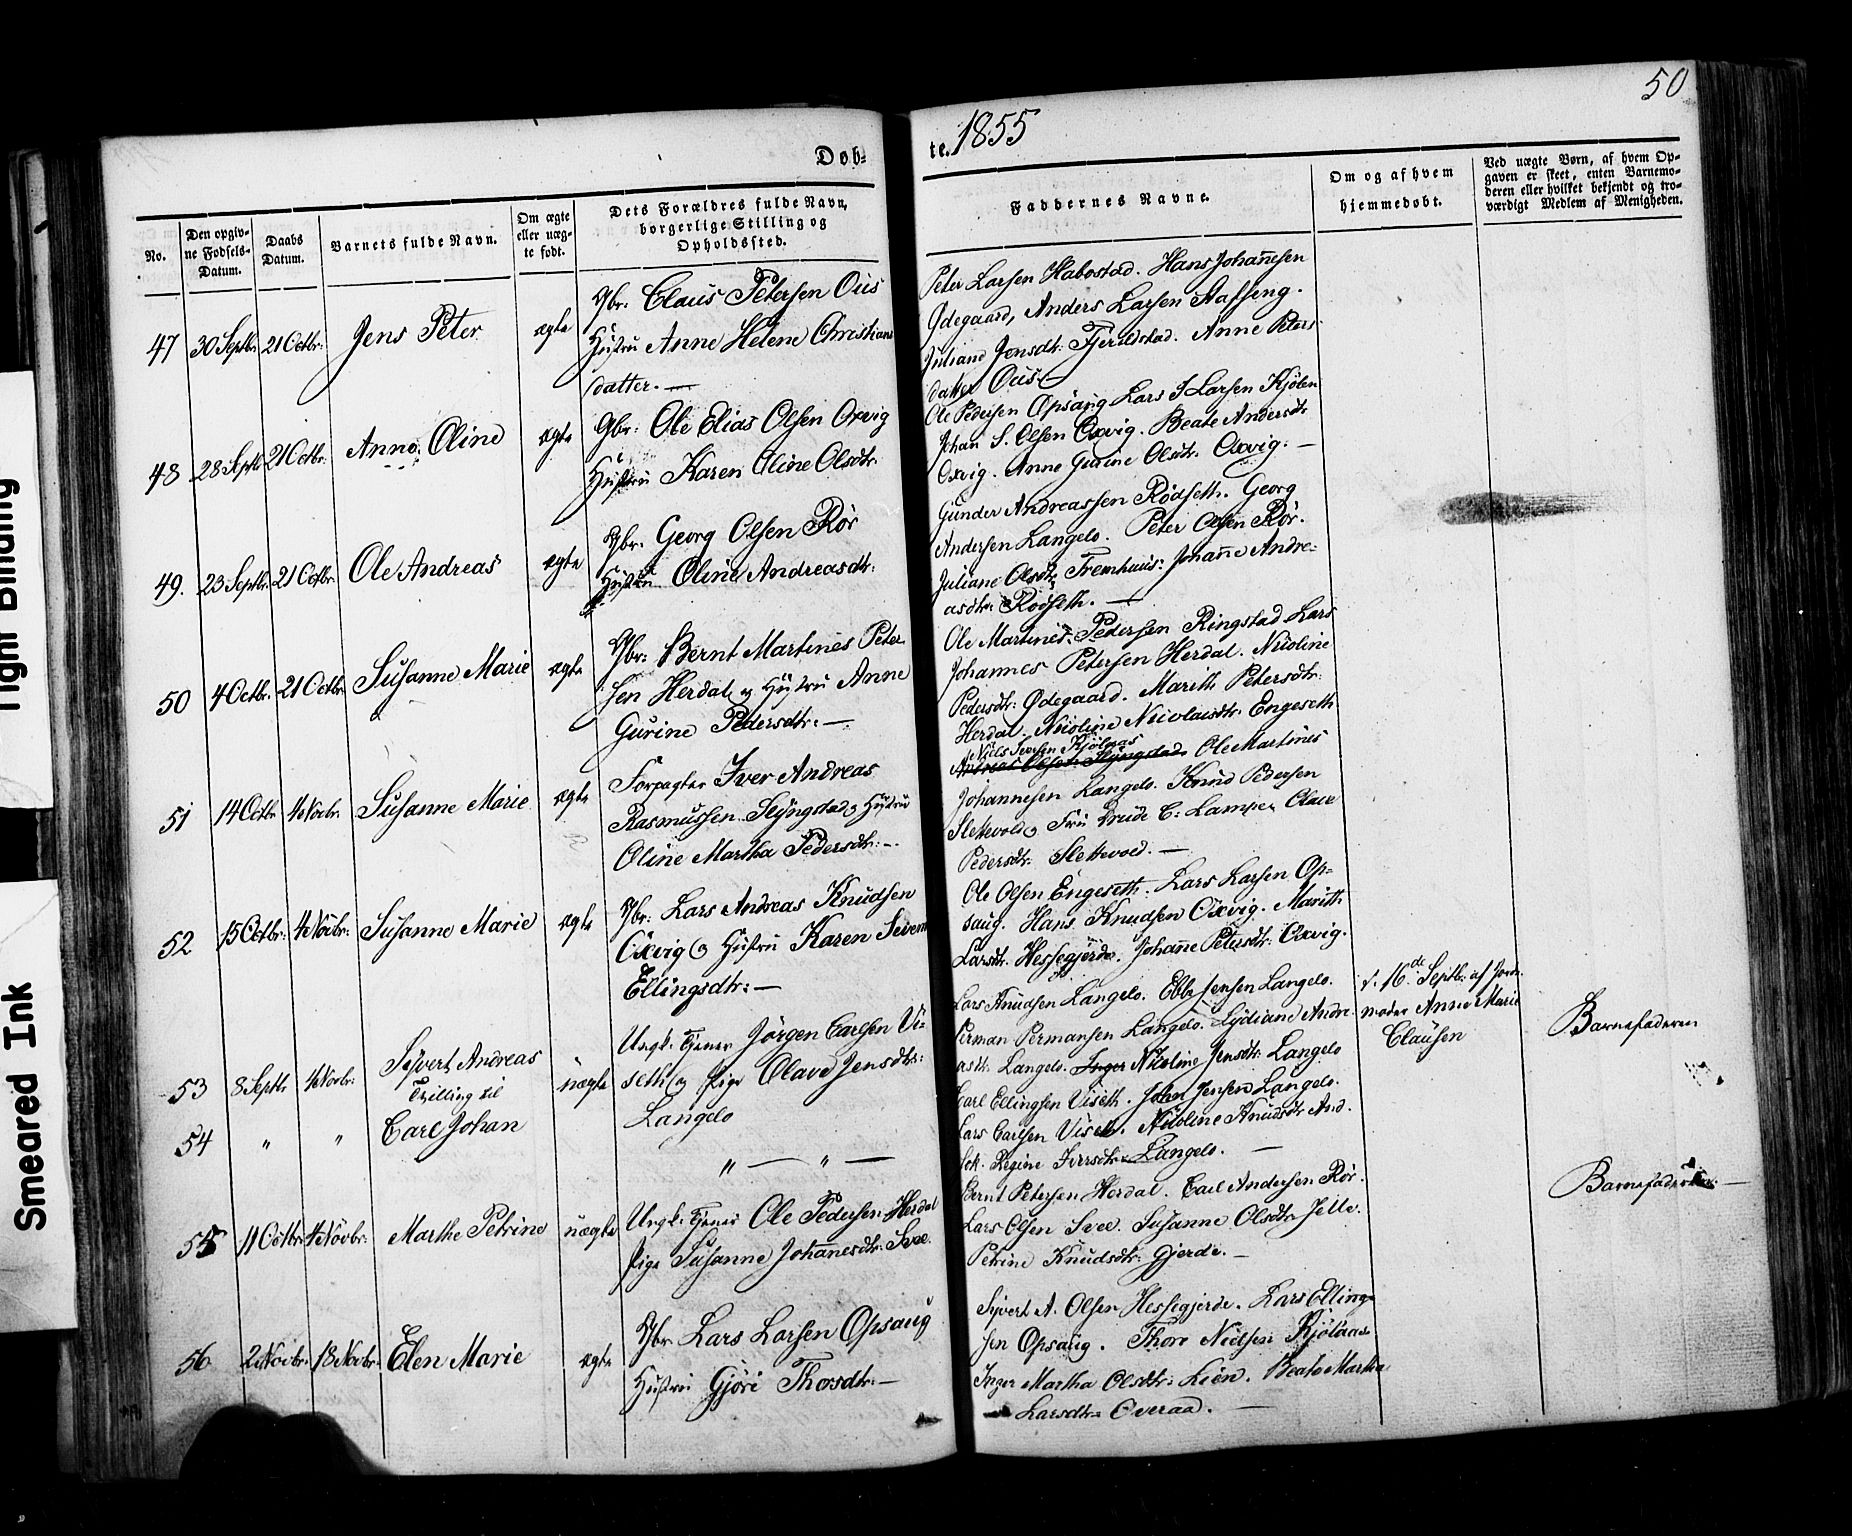 50
Døb-
te. 1855
No.
Den opgiv-
ne Fødsels-
Datum.
Daabs
Datum.
Barnets fulde Navn.
Om ægte
eller uæg-
te født.
Dets Forældres fulde Navn,
borgerlige Stilling og
Opholdssted.
Faddernes Navne.
Om og af hvem
hjemmedøbt.
Ved uægte Børn, af hvem Op-
gaven er skeet, enten Barnemo-
deren eller hvilket bekjendt og tro-
værdigt Medlem af Menigheden.
47 30 Septbr. 21 Octbr: Jens Peter ægte
Gbr: Claus Petersen Ous
Hustru Anne Helene Christians
datter. —
Peter Larsen Habostad. Hans Johannesen
Ødegaard, Anders Larsen Aasseng.
Juliane Jensdtr: Fjeldstad. Anne Peters-
datter Ous. —
48 28 Septb 21 Octbr: Anne Oline ægte
Gbr: Ole Elias Olsen Oxvig
Hustru Karen Oline Olsdtr.
Ole Pedersen Opsaug Lars I Larsen Kjølen
Johan S. Olsen Oxvig. Beate Andersdtr
Oxvig. Anne Gurine Olsdtr. Oxvig. —
49. 23 Septbr. 21 Octbr. Ole Andreas ægte
Gbr. Georg Olsen Rør
Hustru Oline Andreasdtr:
Gunder Andreassen Rødseth. Georg
Andersen Langelo. Peter Olsen Rør.
Juliane Olsdtr Fremhuus: Johanne Andre-
asdtr: Rødseth. —
50 4 Octbr. 21 Octbr Susanne Marie ægte
Gbr: Bernt Martines Peter
sen Herdal og Hustru Anne
Gurine Pedersdtr: —
Ole Martines Pedersen Ringstad Lars
Johannes Petersen Herdal. Nicoline
Pedersdtr: Ødegaard. Marith Petersdtr:
Herdal. Nicoline Nicolaisdtr: Engeseth
51 14 Octbr 4 Novbr. Susanne Marie ægte
Forpagter Iver Andreas
Rasmussen Slyngstad og Hustru
Oline Martha Pedersdtr: —
Niels Iversen Kjølaas
Andreas Olsen Slyngstad Ole Martines
Johannesen Langelo. Knud Pedersen
Slettevold, Fru Drude C: Lampe, Olave
Pedersdtr: Slettevold. —
52 15 Octbr: 4 Novbr: Susanne Marie ægte
Gbr: Lars Andreas Knudsen
Oxvig og Hustru Karen Severine
Ellingsdtr: —
Ole Olsen Engeseth. Lars Larsen Op-
saug. Hans Knudsen Oxvig. Marith
Larsdtr: Hessegjerde. Johanne Petersdtr: Oxvig.
53 8 Septbr 4 Novbr: Syvert Andreas
Tvilling til
uægte
Ungk: Tjener Jørgen Carlsen Vi-
seth og Pige Olave Jensdtr:
Langelo
Lars Knudsen Langelo. Ebbe Jensen Langelo.
Perman Permansen Langelo. Lydiane Andre-
asdtr. Langelo. Inger Nicoline Jensdtr: Langelo
d. 16de Septbr: af Jorde-
moder Anne Marie
Clausen
Barnefaderen
54 " " Carl Johan
" — " —
Carl Ellingsen Viseth. John Jensen Langelo.
Lars Carlsen Viseth. Nicoline Knudsdtr And-
Regine Iversdtr: Langelo. —
55 11 Octbr 4 Novbr: Marthe Petrine uægte
Ungk: Tjener Ole Pedersen Herdal
Pige Susanne Johannesdtr: Svee.
Bernt Petersen Herdal. Carl Andersen Rør.
Lars Olsen Svee. Susanne Olsdtr Jelle.
Petrine Knudsdtr: Gjerde. —
Barnefaderen. —
56 2 Novbr: 18 Novbr. Elen Marie ægte
Gbr Lars Larsen Opsaug
Hustru Gjøri Thorsdtr: —
Syvert A. Olsen Hessegjerde. Lars Elling-
sen Opsaug. Thore Nielsen Kjølaas
Inger Martha Olsdtr: Lien. Beate Martha
Larsdtr: Overaa. —
Tight Binding
Smeared Ink